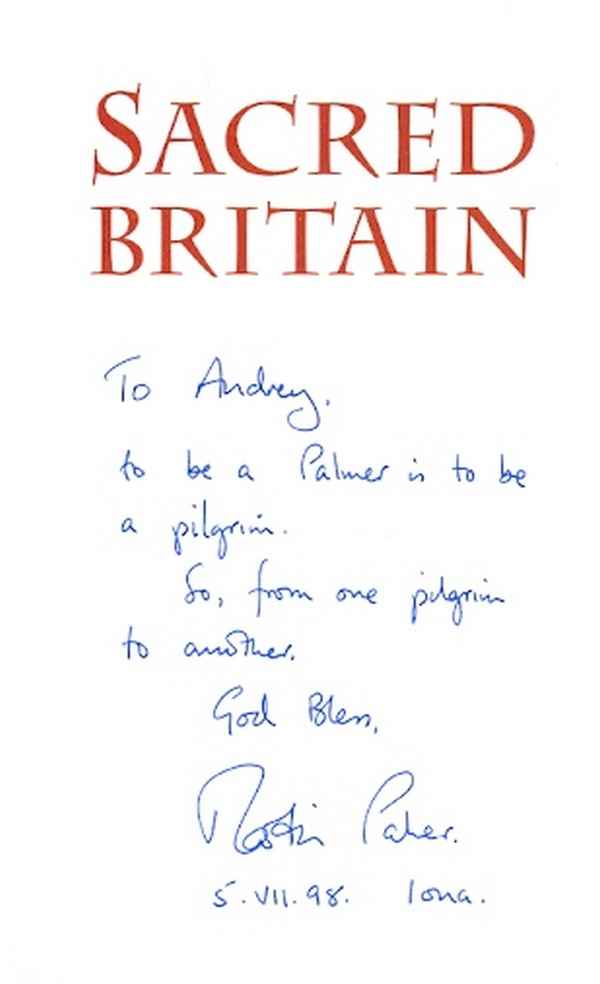 SACRED
BRITAIN
To Audrey,
to be a Palmer is to be
a pilgrim.
So, from one pilgrim
to another.
God Bless,
Martin Palmer.
5.VII.98. Iona.